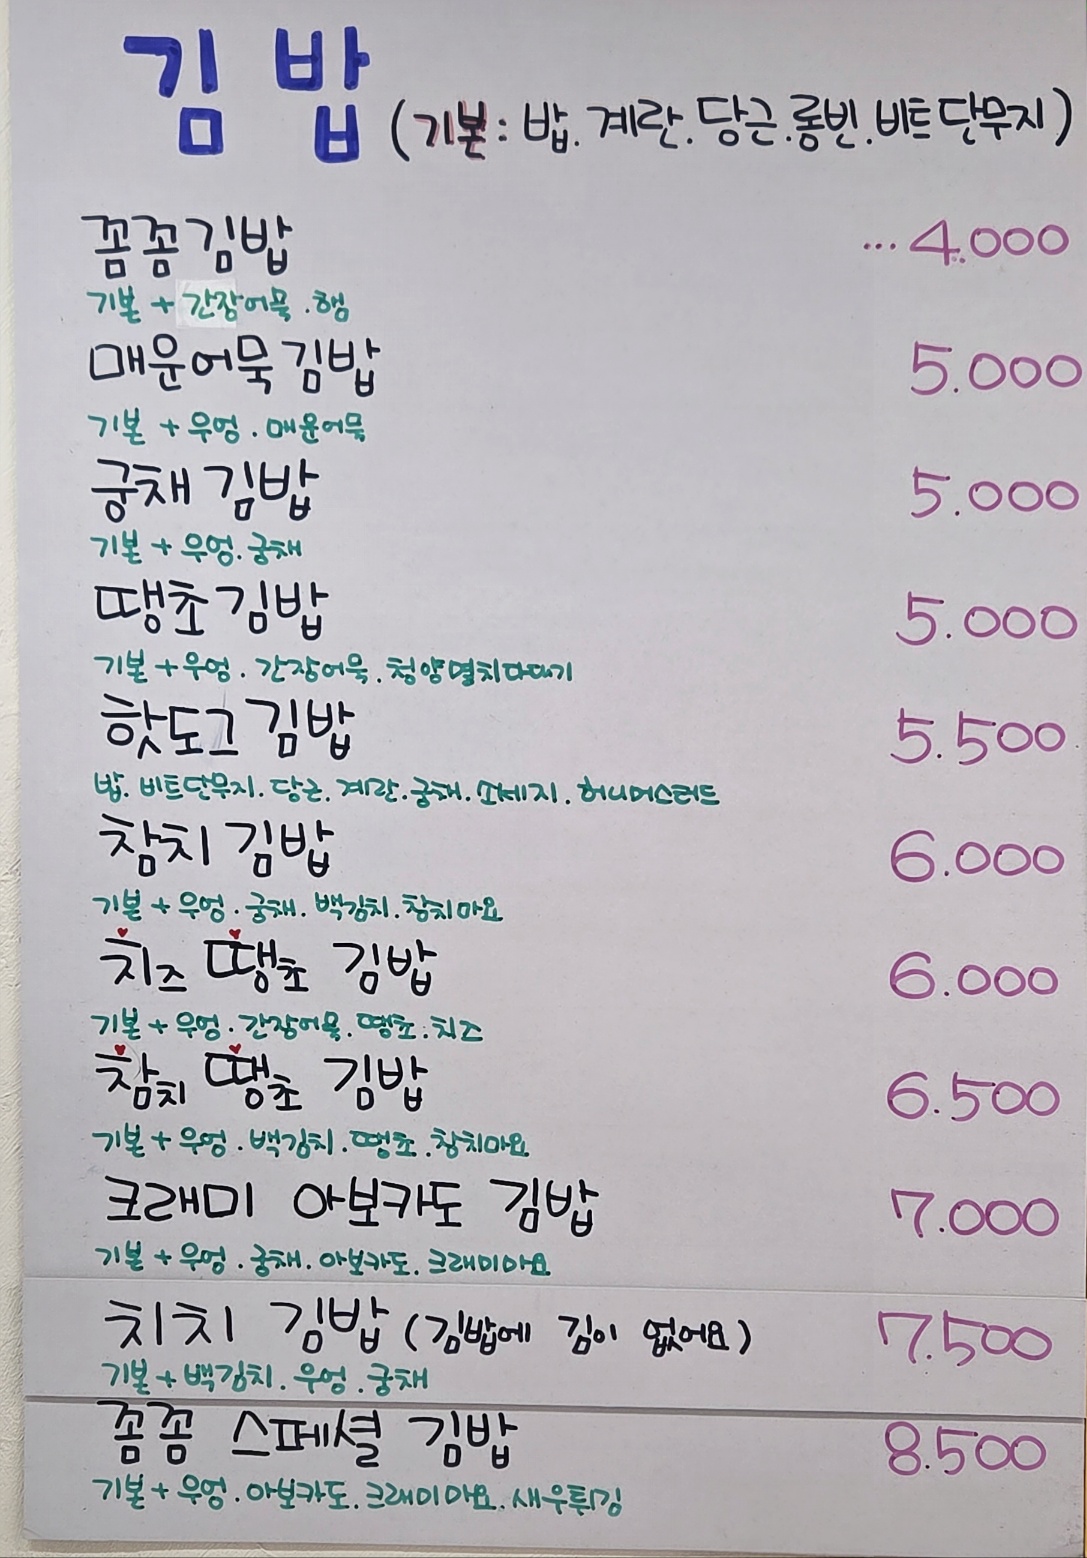 김밥 (기본: 밥. 계란. 당근. 롱빈. 비트단무지)
꼼꼼김밥 ...4.000
기본 + 간장어묵. 햄
매운어묵김밥 5.000
기본 + 우엉. 매운어묵
궁채김밥 5.000
기본 + 우엉. 궁채
땡초김밥 5.000
기본 + 우엉. 간장어묵. 청양멸치다대기
핫도그김밥 5.500
밥. 비트단무지. 당근. 계란. 궁채. 쏘세지. 허니머스터드
참치김밥 6.000
기본 + 우엉. 궁채. 백김치. 참치마요
치즈 땡초 김밥 6.000
기본 + 우엉. 간장어묵. 땡초. 치즈
참치 땡초 김밥 6.500
기본 + 우엉. 백김치. 땡초. 참치마요
크래미 아보카도 김밥 7.000
기본 + 우엉. 궁채. 아보카도. 크래미마요
치치 김밥 (김밥에 김이 없어요) 7.500
기본 + 백김치. 우엉. 궁채
꼼꼼 스페셜 김밥 8.500
기본 + 우엉. 아보카도. 크래미마요. 새우튀김